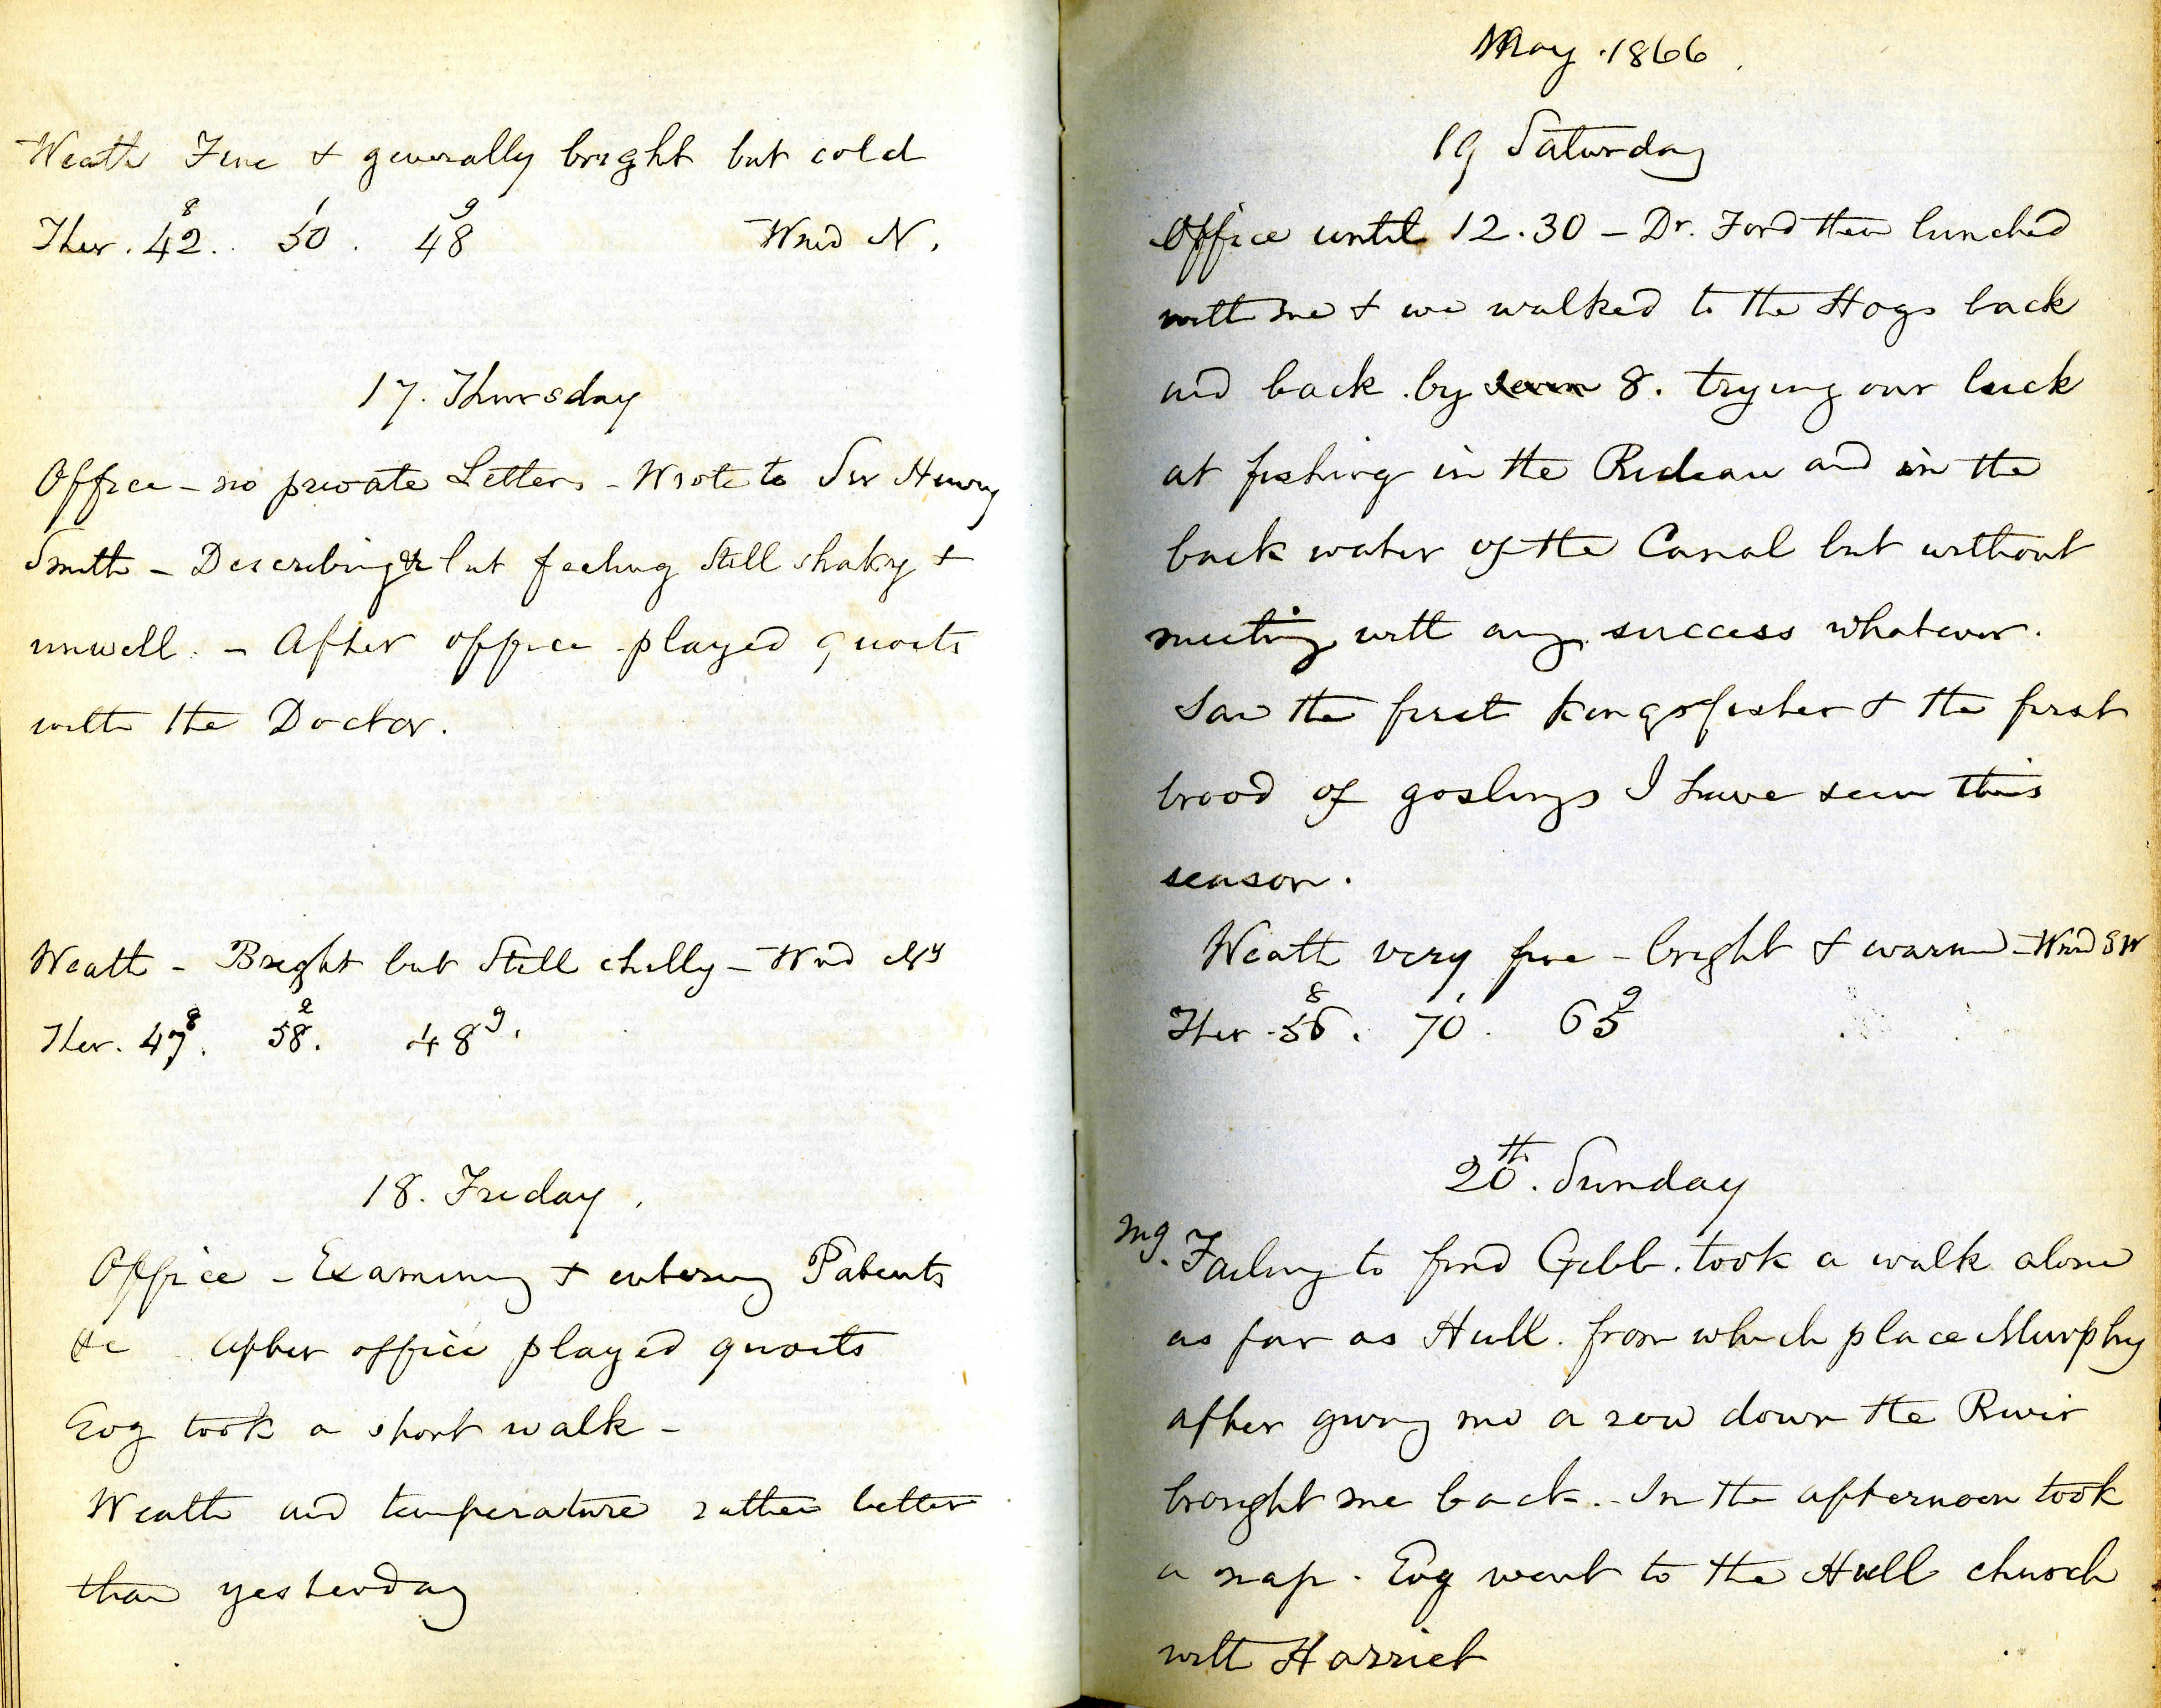 Weath Fine & generally bright but cold
Ther. 42⁸. 50¹. 48⁹ Wind N.
17. Thursday
Office – no private Letters – Wrote to Sir Henry
Smith – Describing but feeling Still shaky &
unwell. – After office played quoits
with the Doctor.
Weath – Bright but Still chilly – Wind Nʸ
Ther. 47⁸. 58². 48⁹.
18. Friday.
Office – Examining & entering Patents
&c after office played quoits
Evg took a short walk –
Weath and temperature rather better
than yesterday
May 1866.
19 Saturday
Office until 12.30 – Dr. Ford then lunched
with me & we walked to the Hogs back
and back by seven 8. trying our luck
at fishing in the Rideau and in the
back water of the Canal but without
meeting with any success whatever.
Saw the first kingsfisher & the first
brood of goslings I have seen this
season.
Weath very fine – bright & warm – Wind SW
Ther. 56⁸. 70¹. 65⁹
20th. Sunday
Mg. Failing to find Gibb. took a walk alone
as far as Hull. from which place Murphy
after giving me a row down the River
brought me back. – In the afternoon took
a nap. Evg went to the Hull church
with Harriet